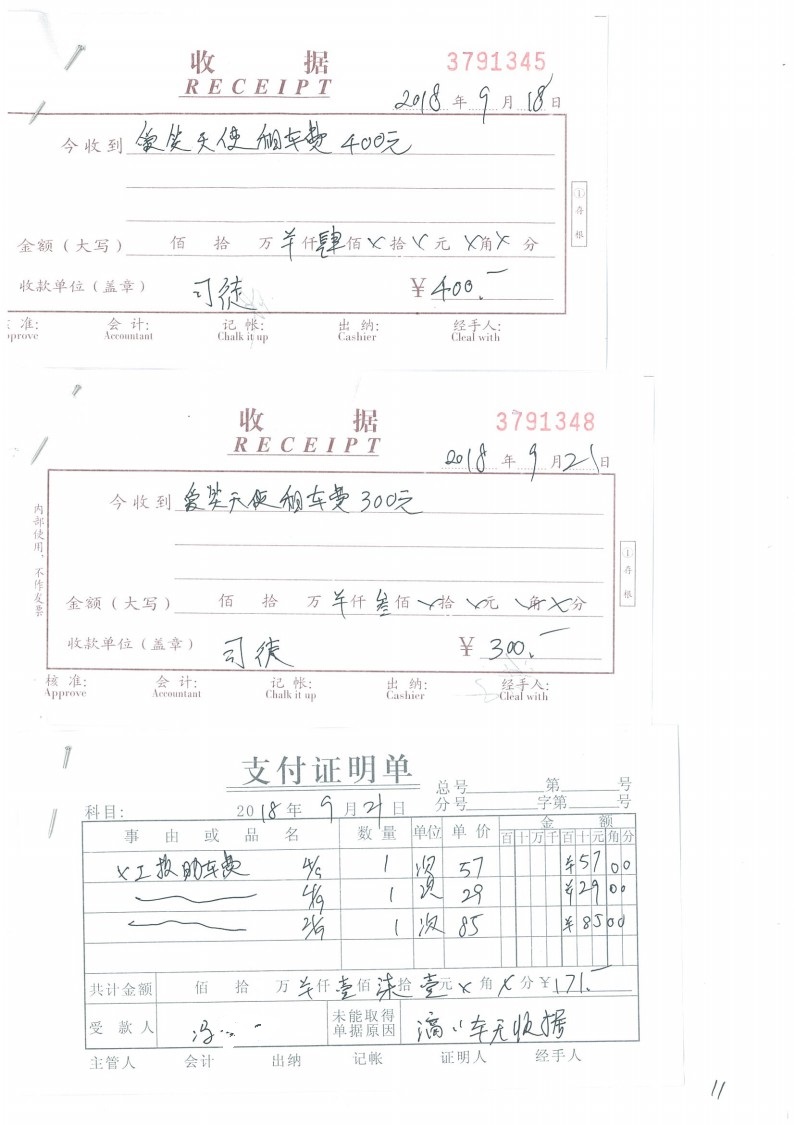 收 据 3791345
RECEIPT
2018 年 9 月 18 日
今收到 爱笑天使租车费 400元
①存根
金额（大写） 佰 拾 万 仟 肆 佰 X 拾 X 元 X 角 X 分
收款单位（盖章） 司徒 ¥ 400.—
准: 会 计: 记 帐: 出 纳: 经手人:
prove Accountant Chalk it up Cashier Cleal with
收 据 3791348
RECEIPT
2018 年 9 月 21 日
内部使用，不作发票
今收到 爱笑天使租车费 300元
①存根
金额（大写） 佰 拾 万 仟 叁 佰 拾 元 角 X 分
收款单位（盖章） 司徒 ¥ 300.—
核 准: 会 计: 记 帐: 出 纳: 经手人:
Approve Accountant Chalk it up Cashier Cleal with
支付证明单
总号 第 号
科目: 2018 年 9 月 21 日 分号 字第 号
事 由 或 品 名 数 量 单位 单 价 金 额
百 十 万 千 百 十 元 角 分
工救助车费 1 次 57 ¥57 00
1 次 29 ¥29 00
1 次 85 ¥85 00
共计金额 佰 拾 万 仟 壹 佰 柒 拾 壹 元 X 角 X 分 ¥171.—
受 款 人 冯 未能取得单据原因 滴滴车无收据
主管人 会计 出纳 记帐 证明人 经手人
11